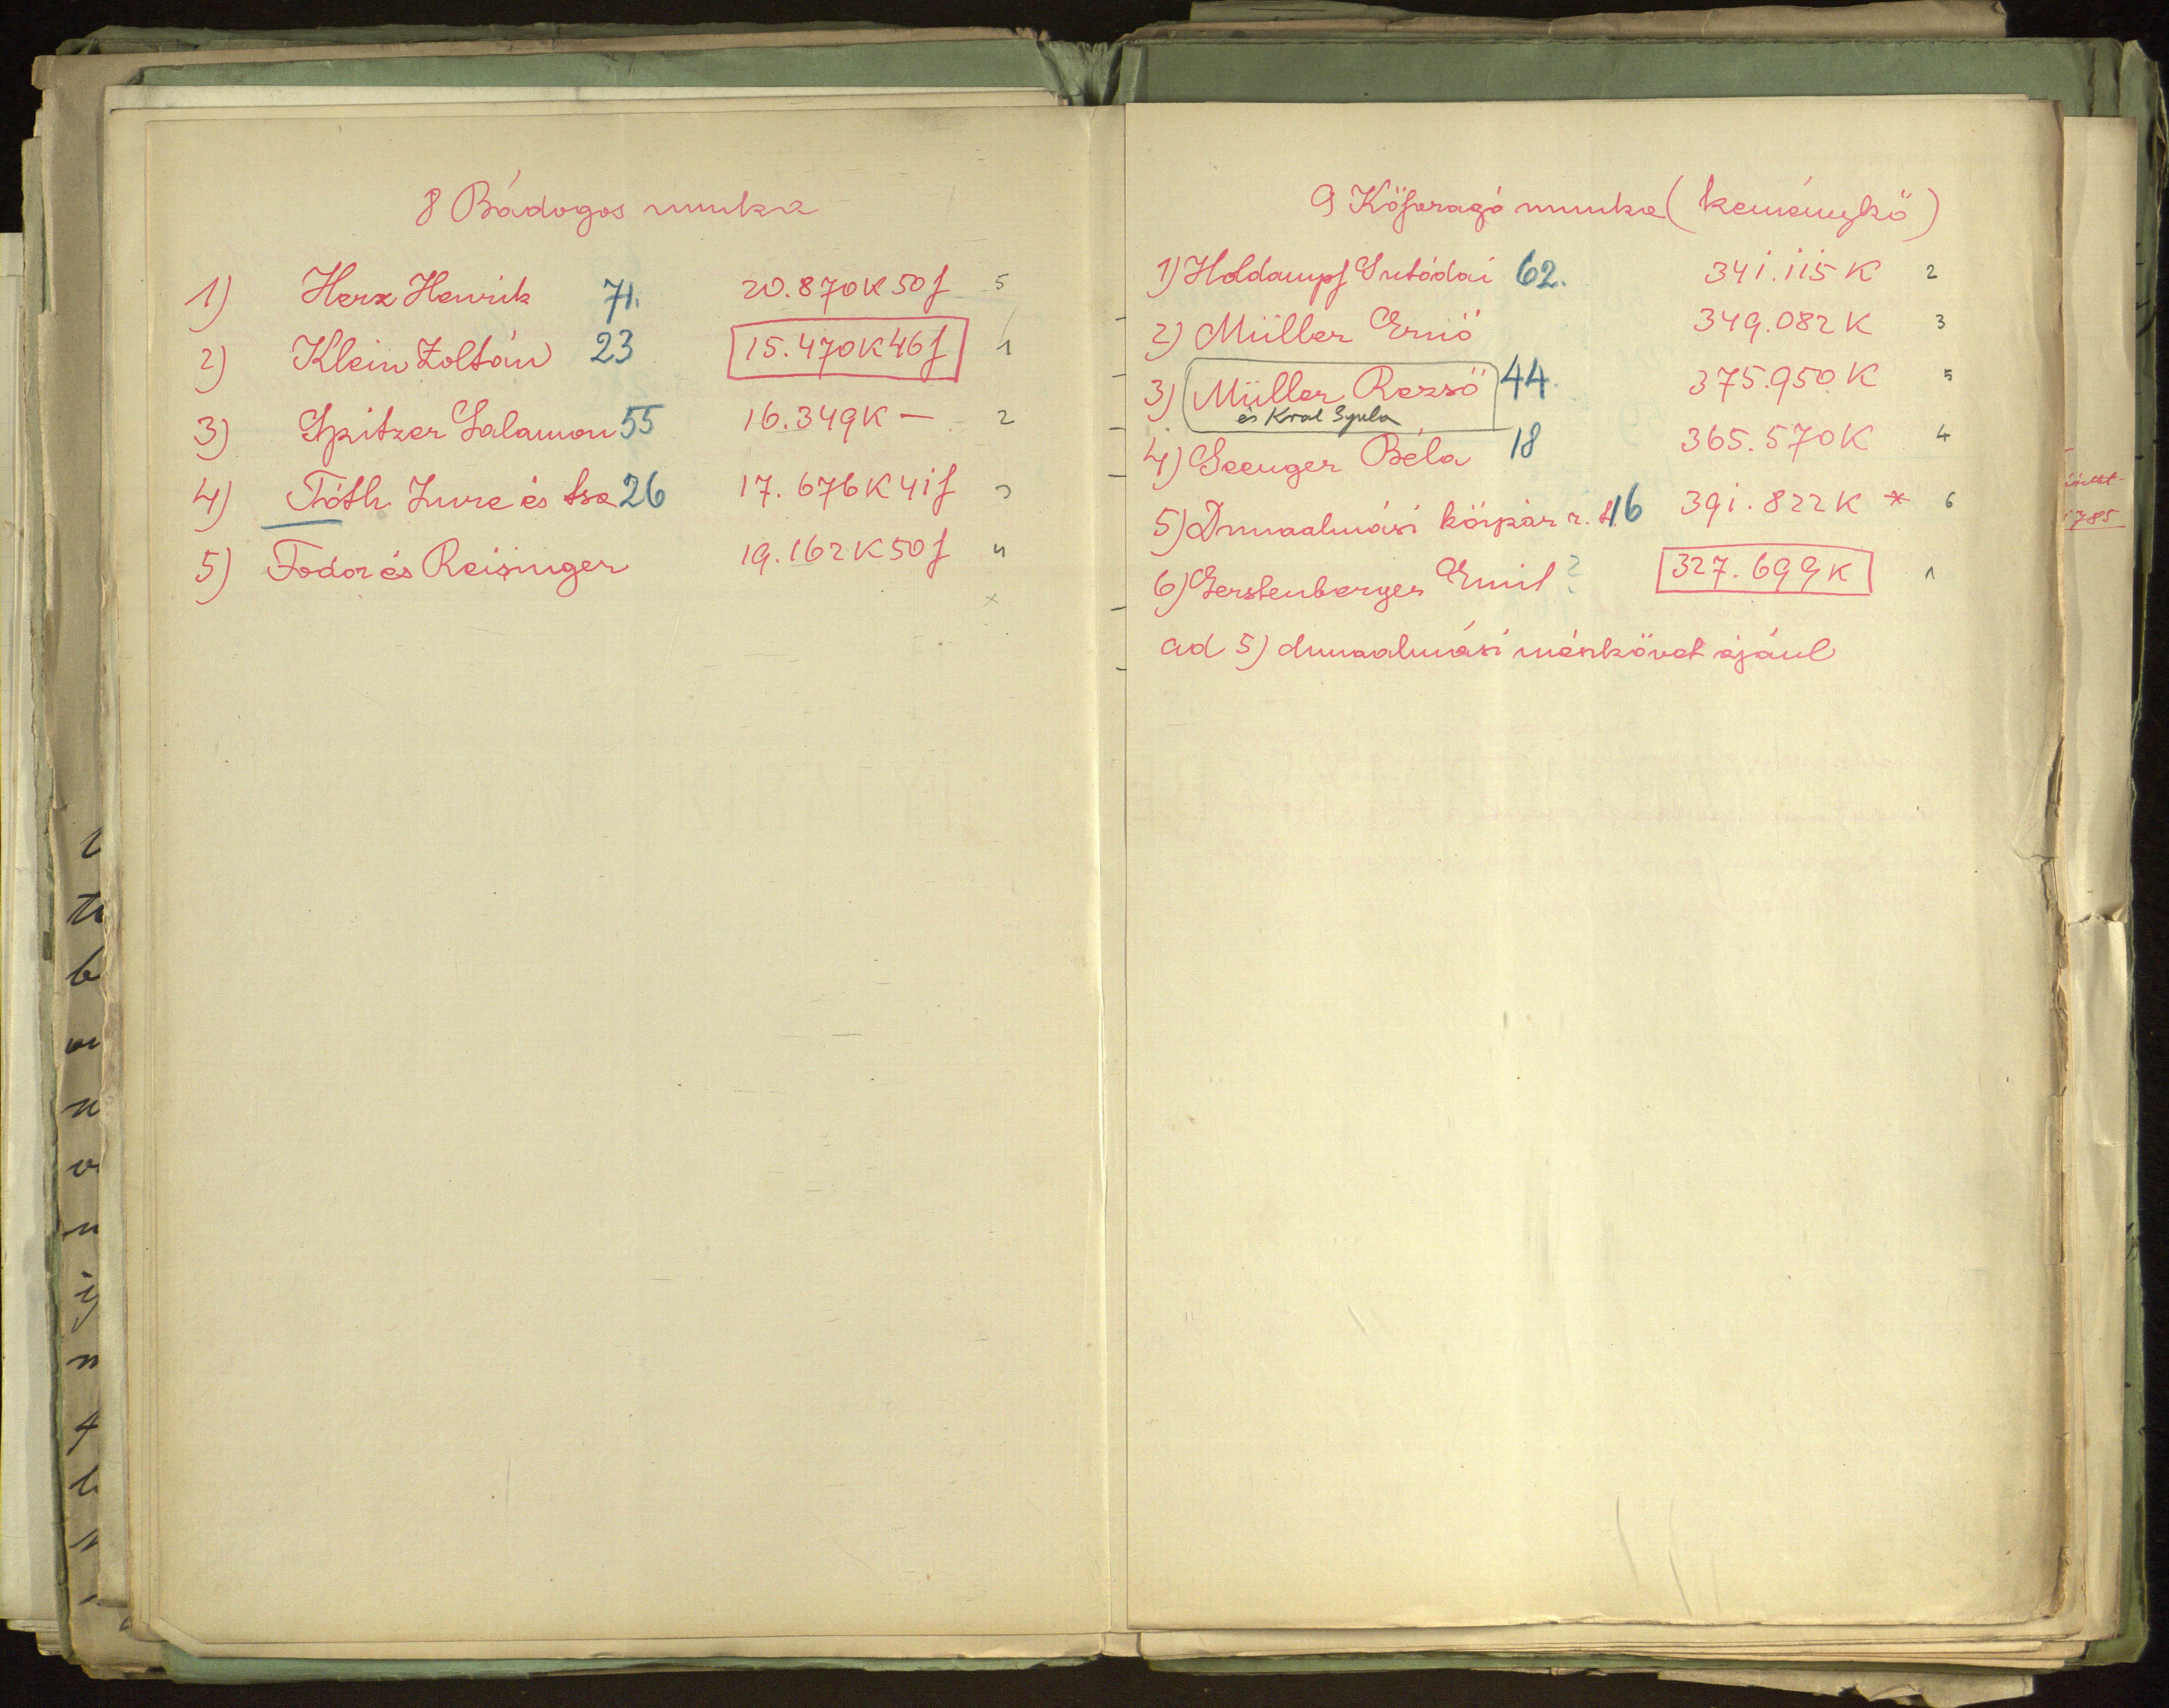 8 Bádogos munka
1) Herz Henrik 71. 20.870K 50f 5
2) Klein Zoltán 23 15.470K 46f 1
3) Spitzer Salamon 55 16.349K — 2
4) Tóth Imre és tsa 26 17.676K 41f 3
5) Fodor és Reisinger 19.162K 50f 4
x
9 Kőfaragó munka (keménykő)
1) Holdampf Utódai 62. 341.115K 2
2) Müller Ernő 349.082K 3
3) Müller Rezső 44. 375.950K 5
és Kral Gyula
4) Seenger Béla 18 365.570K 4
5) Dunaalmási kőipar r. t. 16 391.822K * 6
6) Gerstenberger Emil ? 327.699K 1
ad 5) dunaalmási mészkövet ajánl
785